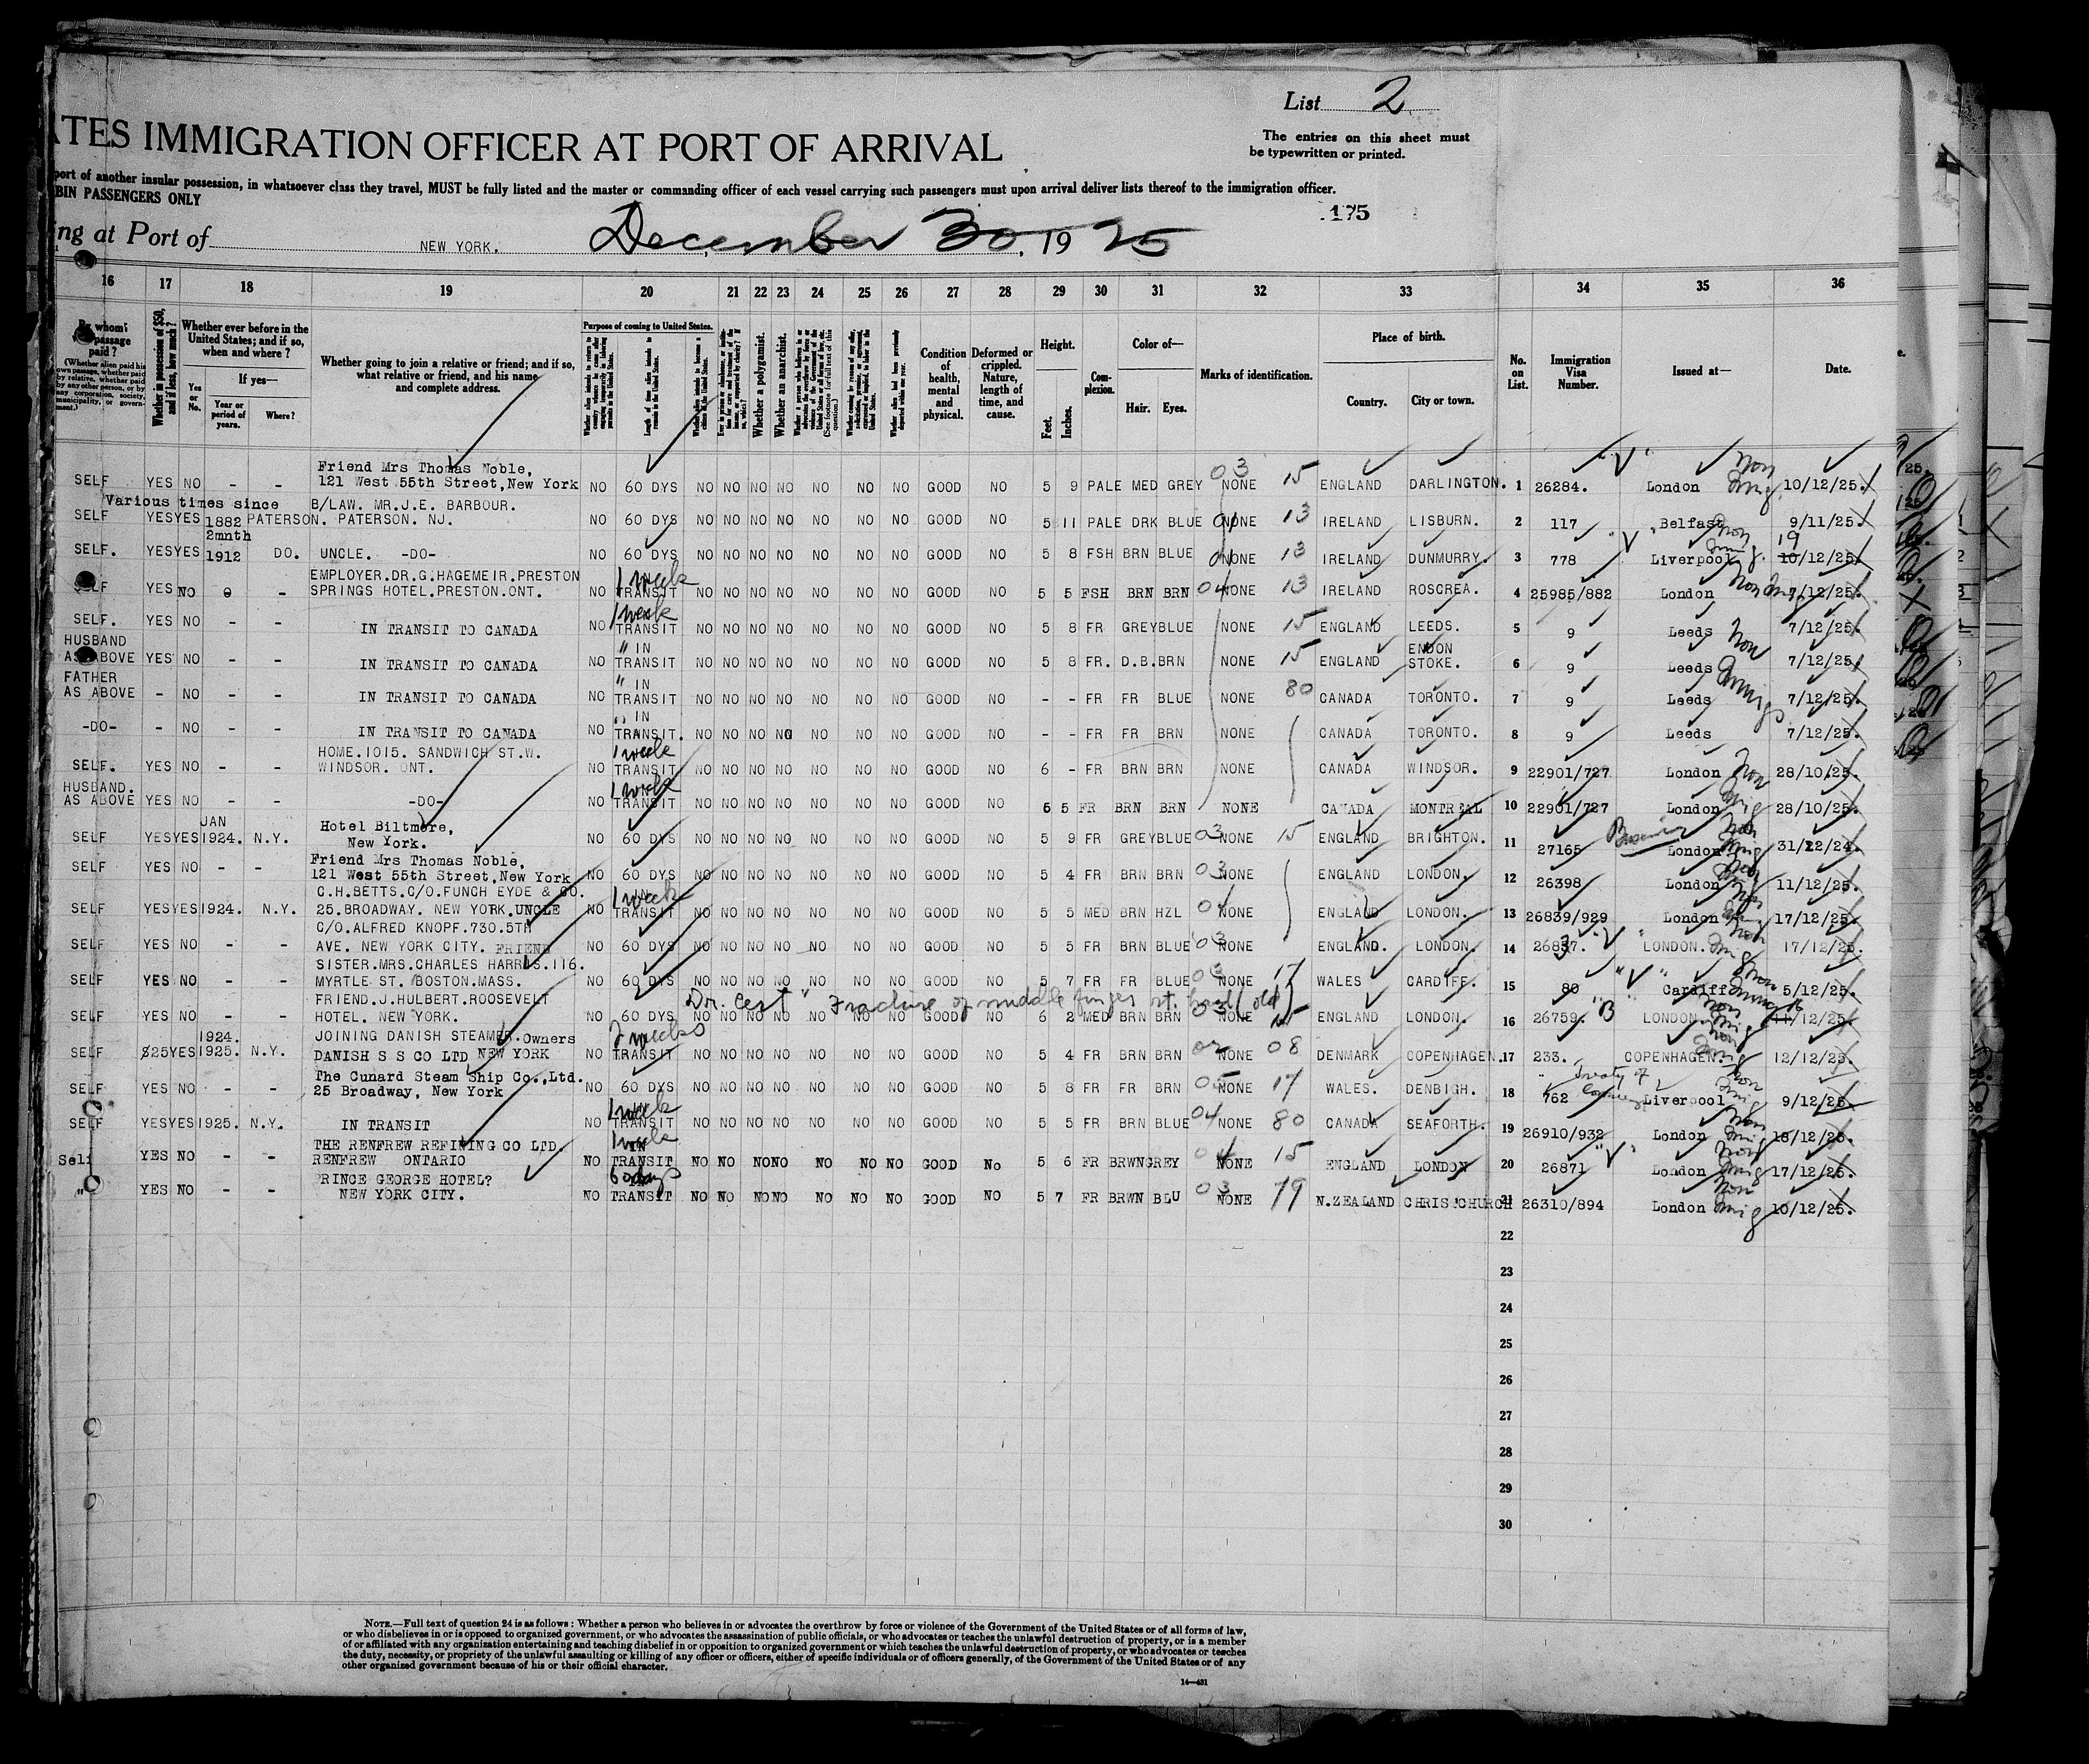 List 2
ATES IMMIGRATION OFFICER AT PORT OF ARRIVAL
The entries on this sheet must be typewritten or printed.
port of another insular possession, in whatsoever class they travel, MUST be fully listed and the master or commanding officer of each vessel carrying such passengers must upon arrival deliver lists thereof to the immigration officer.
BIN PASSENGERS ONLY
175
ng at Port of NEW YORK. December 30, 1925
16 17 18 19 20 21 22 23 24 25 26 27 28 29 30 31 32 33 34 35 36
By whom was passage paid?
(Whether alien paid his own passage, whether paid by relative, whether paid by any other person, or by any corporation, society, municipality, or government.)
Whether in possession of $50, and if less, how much?
Whether ever before in the United States; and if so, when and where?
Yes or No.
If yes—
Year or period of years.
Where?
Whether going to join a relative or friend; and if so, what relative or friend, and his name and complete address.
Purpose of coming to United States.
Length of time alien intends to remain in the United States.
Whether a polygamist.
Whether an anarchist.
Condition of health, mental and physical.
Deformed or crippled. Nature, length of time, and cause.
Height.
Feet. Inches.
Complexion.
Color of—
Hair. Eyes.
Marks of identification.
Place of birth.
Country. City or town.
No. on List.
Immigration Visa Number.
Issued at—
Date.
SELF YES NO - - Friend Mrs Thomas Noble, 121 West 55th Street,New York NO 60 DYS NO NO NO NO NO NO NO GOOD NO 5 9 PALE MED GREY 03 NONE 15 ENGLAND DARLINGTON. 1 26284. "V" London Non Imig. 10/12/25.
Various times since
SELF YES YES 1882 PATERSON. B/LAW. MR.J.E. BARBOUR. PATERSON. NJ. NO 60 DYS NO NO NO NO NO NO NO GOOD NO 5 11 PALE DRK BLUE 04 NONE 13 IRELAND LISBURN. 2 117 Belfast 9/11/25.
SELF. YES YES 2mnth 1912 DO. UNCLE. -DO- NO 60 DYS NO NO NO NO NO NO NO GOOD NO 5 8 FSH BRN BLUE 04 NONE 13 IRELAND DUNMURRY. 3 778 Liverpool 19 10/12/25.
SELF YES NO - - EMPLOYER.DR.G.HAGEMEIR.PRESTON SPRINGS HOTEL.PRESTON.ONT. NO 1 week IN TRANSIT NO NO NO NO NO NO NO GOOD NO 5 5 FSH BRN BRN 04 NONE 13 IRELAND ROSCREA. 4 25985/882 London 7/12/25.
SELF. YES NO - - IN TRANSIT TO CANADA NO 1 week TRANSIT NO NO NO NO NO NO NO GOOD NO 5 8 FR GREY BLUE NONE 15 ENGLAND LEEDS. 5 9 Leeds 7/12/25.
HUSBAND AS ABOVE YES NO - - IN TRANSIT TO CANADA NO " IN TRANSIT NO NO NO NO NO NO NO GOOD NO 5 8 FR. D.B.BRN NONE 15 ENGLAND ENDON STOKE. 6 9 Leeds 7/12/25.
FATHER AS ABOVE - NO - - IN TRANSIT TO CANADA NO " IN TRANSIT NO NO NO NO NO NO NO GOOD NO - - FR FR BLUE NONE 80 CANADA TORONTO. 7 9 Leeds 7/12/25.
-DO- - NO - - IN TRANSIT TO CANADA NO " IN TRANSIT. NO NO NO NO NO NO NO GOOD NO - - FR FR BRN NONE CANADA TORONTO. 8 9 Leeds 7/12/25.
SELF. YES NO - - HOME.1015. SANDWICH ST.W. WINDSOR. ONT. NO 1 week TRANSIT NO NO NO NO NO NO NO GOOD NO 6 - FR BRN BRN NONE CANADA WINDSOR. 9 22901/727 London 28/10.25.
HUSBAND. AS ABOVE YES NO - - -DO- NO 1 week TRANSIT NO NO NO NO NO NO NO GOOD NO 5 5 FR BRN BRN NONE CANADA MONTREAL 10 22901/727 London 28/10.25.
SELF YES YES JAN 1924. N.Y. Hotel Biltmore, New York. NO 60 DYS NO NO NO NO NO NO NO GOOD NO 5 9 FR GREY BLUE 03 NONE 15 ENGLAND BRIGHTON. 11 27165 London 31/12/24.
SELF YES NO - - Friend Mrs Thomas Noble, 121 West 55th Street,New York NO 60 DYS NO NO NO NO NO NO NO GOOD NO 5 4 FR BRN BRN 03 NONE ENGLAND LONDON. 12 26398 London 11/12/25.
SELF YES YES 1924. N.Y. C.H.BETTS.C/O.FUNCH EYDE & CO. 25.BROADWAY. NEW YORK.UNCLE NO 1 week TRANSIT NO NO NO NO NO NO NO GOOD NO 5 5 MED BRN HZL 04 NONE ENGLAND LONDON. 13 26839/929 London 17/12/25.
SELF YES NO - - C/O.ALFRED KNOPF.730.5TH AVE. NEW YORK CITY. FRIEND NO 60 DYS NO NO NO NO NO NO NO GOOD NO 5 5 FR BRN BLUE 03 NONE ENGLAND. LONDON. 14 26837. "V" LONDON. 17/12/25.
SELF YES NO - - SISTER.MRS.CHARLES HARRIS.116. MYRTLE ST. BOSTON.MASS. NO 60 DYS NO NO NO NO NO NO NO GOOD NO 5 7 FR FR BLUE 03 NONE 17 WALES CARDIFF. 15 80 "V" Cardiff 5/12/25.
Dr. Cert" Fracture of middle finger rt. hand (old)
SELF YES NO - - FRIEND.J.HULBERT.ROOSEVELT HOTEL. NEW YORK. NO 60 DYS NO NO NO NO NO NO NO GOOD NO 6 2 MED BRN BRN 03 NONE 15 ENGLAND LONDON. 16 26759. "B" LONDON. 16 11/12/25.
SELF $25 YES 1924. 1925. N.Y. JOINING DANISH STEAMER. Owners DANISH S S CO LTD NEW YORK NO 2 weeks TRANSIT NO NO NO NO NO NO NO GOOD NO 5 4 FR BRN BRN NONE 08 DENMARK COPENHAGEN. 17 233. COPENHAGEN. 12/12/25.
SELF YES NO - - The Cunard Steam Ship Co.,Ltd. 25 Broadway, New York NO 60 DYS NO NO NO NO NO NO NO GOOD NO 5 8 FR FR BRN 05 NONE 17 WALES. DENBIGH. 18 762 Treaty of Liverpool 9/12/25.
SELF YES YES 1925. N.Y. IN TRANSIT NO 1 week TRANSIT NO NO NO NO NO NO NO GOOD NO 5 5 FR BRN BLUE 04 NONE 80 CANADA SEAFORTH. 19 26910/932 London 18/12/25.
Self YES NO - - THE RENFREW REFINING CO LTD. RENFREW ONTARIO NO 1 week IN TRANSIT NO NO NO NO NO NO NO GOOD No 5 6 FR BRWN GREY 04 NONE 15 ENGLAND LONDON 20 26871 "V" London 17/12/25.
" YES NO - - PRINCE GEORGE HOTEL? NEW YORK CITY. NO 60 days IN TRANSIT NO NO NO NO NO NO NO GOOD NO 5 7 FR BRWN BLU 03 NONE 79 N.ZEALAND CHRIS'CHURCH 21 26310/894 London 10/12/25.
22
23
24
25
26
27
28
29
30
NOTE.—Full text of question 24 is as follows: Whether a person who believes in or advocates the overthrow by force or violence of the Government of the United States or of all forms of law,
or who disbelieves in or is opposed to organized government, or who advocates the assassination of public officials, or who advocates or teaches the unlawful destruction of property, or is a member
of or affiliated with any organization entertaining and teaching disbelief in or opposition to organized government or which teaches the unlawful destruction of property, or who advocates or teaches
the duty, necessity, or propriety of the unlawful assaulting or killing of any officer or officers, either of specific individuals or of officers generally, of the Government of the United States or of any
other organized government because of his or their official character.
14—431